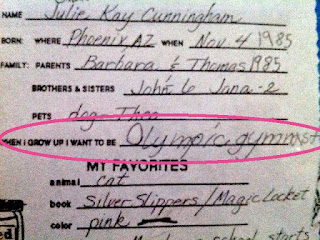 NAME Julie Kay Cunningham
BORN: WHERE Phoenix AZ WHEN Nov 4 1985
FAMILY: PARENTS Barbara & Thomas 1985
BROTHERS & SISTERS John 6 Jana-2
PETS dog-Theo
WHEN I GROW UP I WANT TO BE Olympic gymnst
MY FAVORITES
animal cat
book Silver Slippers/Magic Locket
color pink
school starts